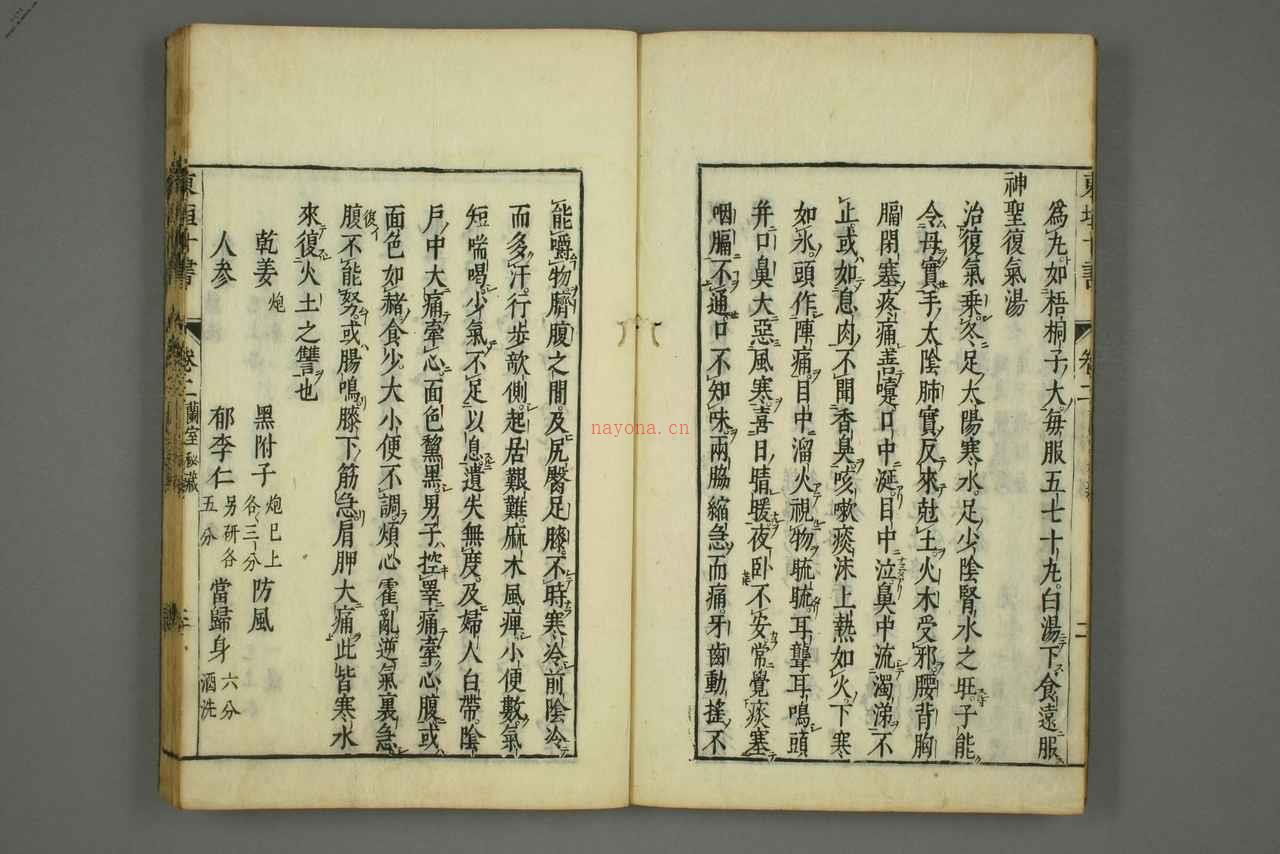 爲丸。如梧桐子大每服五七十丸。白湯下食遠服
神聖復氣湯
治復氣乗冬足太陽寒水。足少陰腎水之旺。子能
令母實手太陰肺實反來尅土。火木受邪腰背胸
膈閉塞疼痛善嚏口中涎。目中泣鼻中流濁涕不
止或如息肉不聞香臭咳嗽痰沫上熱如火。下寒
如氷。頭作陣痛。目中溜火視物𥆧𥆧。耳聾耳鳴頭
并口鼻大惡風寒喜日晴暖夜卧不安常覺痰塞
咽膈不通口不知味兩脇縮急而痛。牙齒動搖不
能嚼物臍腹之間。及尻臀足膝不時寒冷。前陰冷
而多汗。行歩欹側。起居艱難。麻木風痺小便數氣
短喘喝。少氣不足以息遺失無度。及婦人白帶。陰
戸中大痛牽心。面色黧黒。男子控睪痛牽心腹或
面色如赭食少。大小便不調。煩心霍亂逆氣裏急
腹不能努。或腸鳴。膝下筋急肩胛大痛此皆寒水
來復火土之讐也
乾姜炮 黑附子炮已上各三分 防風
人参 郁李仁另研各五分 當歸身六分酒洗
東垣十書
卷二 蘭室秘藏
nayona.cn